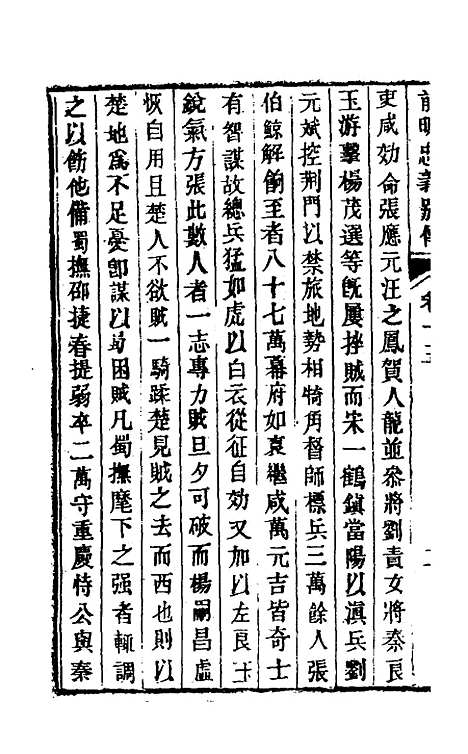 前明忠義別傳 卷十五
吏咸効命張應元汪之鳳賀人龍並叅將劉責女將秦良
玉游擊楊茂選等旣屢挫賊而宋一鶴鎮當陽以滇兵劉
元斌控荆門以禁旅地勢相犄角督師標兵三萬餘人張
伯鯨解餉至者八十七萬幕府如袁繼咸萬元吉皆奇士
有智謀故總兵猛如虎以白衣從征自効又加以左良玉
銳氣方張此數人者一志專力賊旦夕可破而楊嗣昌虛
恢自用且楚人不欲賊一騎蹂楚見賊之去而西也則以
楚地爲不足憂卽謀以
困賊凡蜀撫麾下之强者輒調
之以飭他備蜀撫邵捷春提弱卒二萬守重慶恃公與秦